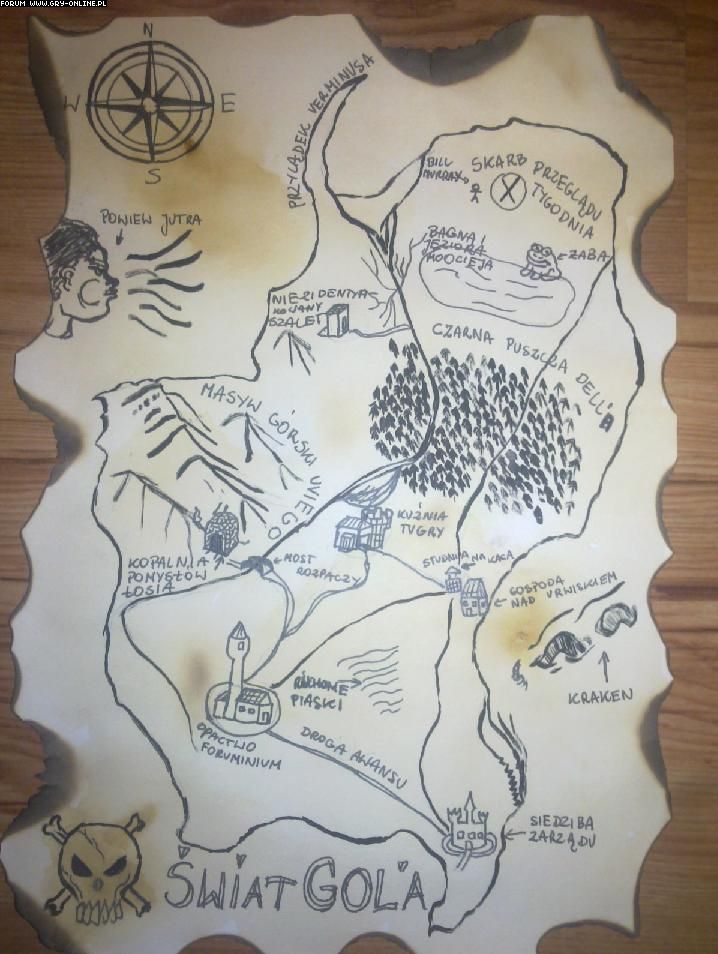 FORUM WWW.GRY-ONLINE.PL
N
W
E
S
PRZYLĄDEK VERMINUSA
BILL
MURRAY
SKARB PRZEGLĄDU
TYGODNIA
X
POWIEW JUTRA
BAGNA I
JEZIORA
MOOCIEJA
ŻABA
NIEZIDENTYFI
KOWANY
SZALET
CZARNA PUSZCZA DELL'A
MASYW GÓRSKI UVIEGO
KUŹNIA
TUGRY
KOPALNIA
POMYSŁÓW
ŁOSIA
MOST
ROZPACZY
STUDNIA NA KACA
GOSPODA
NAD URWISKIEM
KRAKEN
RUCHOME
PIASKI
OPACTWO
FORUMINIUM
DROGA AWANSU
SIEDZIBA
ZARZĄDU
ŚWIAT GOL'A